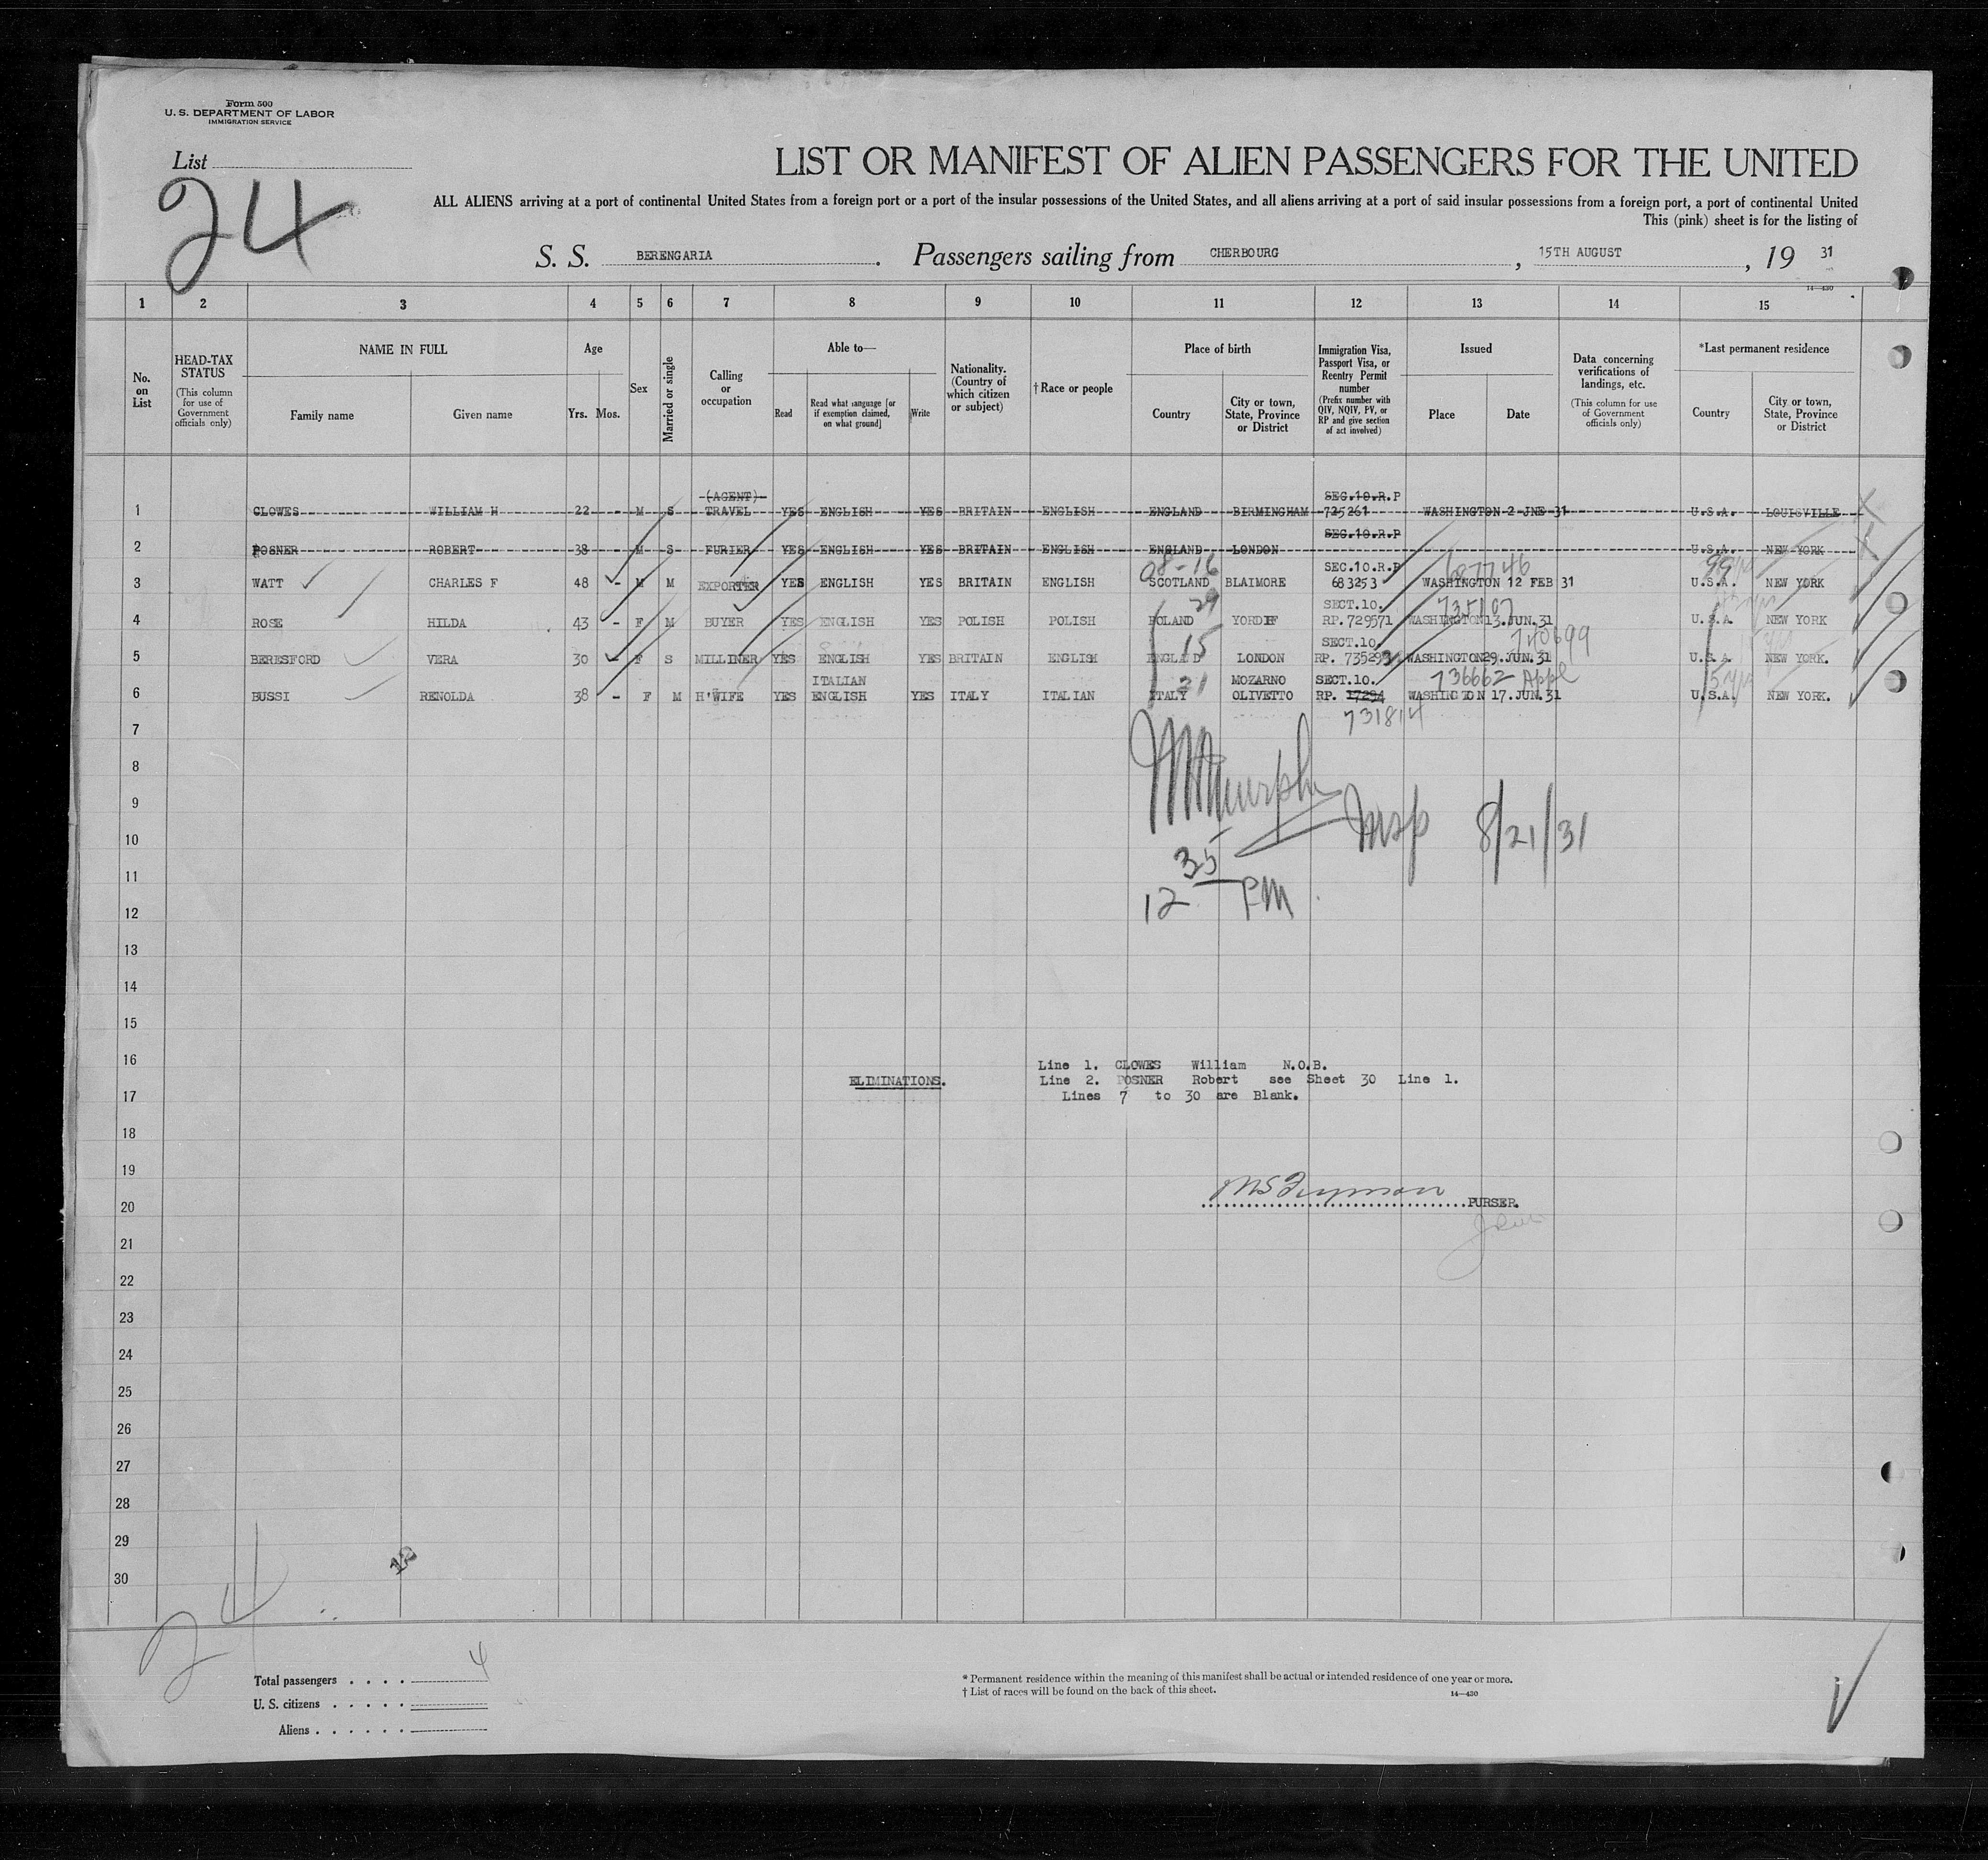 Form 500
U. S. DEPARTMENT OF LABOR
IMMIGRATION SERVICE
List
24
LIST OR MANIFEST OF ALIEN PASSENGERS FOR THE UNITED
ALL ALIENS arriving at a port of continental United States from a foreign port or a port of the insular possessions of the United States, and all aliens arriving at a port of said insular possessions from a foreign port, a port of continental United
This (pink) sheet is for the listing of
S. S. BERENGARIA . Passengers sailing from CHERBOURG , 15TH AUGUST , 19 31
14—430
1 2 3 4 5 6 7 8 9 10 11 12 13 14 15
No. on List
HEAD-TAX STATUS
(This column for use of Government officials only)
NAME IN FULL
Family name Given name
Age
Yrs. Mos.
Sex
Married or single
Calling or occupation
Able to—
Read
Read what language [or if exemption claimed, on what ground]
Write
Nationality. (Country of which citizen or subject)
†Race or people
Place of birth
Country
City or town, State, Province or District
Immigration Visa, Passport Visa, or Reentry Permit number
(Prefix number with QIV, NQIV, PV, or RP and give section of act involved)
Issued
Place Date
Data concerning verifications of landings, etc.
(This column for use of Government officials only)
*Last permanent residence
Country
City or town, State, Province or District
(AGENT) SEC.10.R.P
1 CLOWES WILLIAM H 22 - M S TRAVEL YES ENGLISH YES BRITAIN ENGLISH ENGLAND BIRMINGHAM 725261 WASHINGTON 2 JNE 31 U.S.A. LOUISVILLE
SEC.10.R.P
2 POSNER ROBERT 38 - M S FURIER YES ENGLISH YES BRITAIN ENGLISH ENGLAND LONDON U.S.A. NEW YORK
08-16 SEC.10.R.P 687746
3 WATT CHARLES F 48 - M M EXPORTER YES ENGLISH YES BRITAIN ENGLISH SCOTLAND BLAIMORE 683253 WASHINGTON 12 FEB 31 U.S.A. NEW YORK
29 SECT.10. 735107
4 ROSE HILDA 43 - F M BUYER YES ENGLISH YES POLISH POLISH POLAND YORDIF RP.729571 WASHINGTON 13.JUN.31 U.S.A. NEW YORK
15 SECT.10. 740699
5 BERESFORD VERA 30 - F S MILLINER YES ENGLISH YES BRITAIN ENGLISH ENGLAND LONDON RP. 735293 WASHINGTON 29.JUN.31 U.S.A. NEW YORK.
ITALIAN 21 MOZARNO SECT.10. 736662 Appl
6 BUSSI RENOLDA 38 - F M H'WIFE YES ENGLISH YES ITALY ITALIAN ITALY OLIVETTO RP. 17294 WASHINGTON 17.JUN.31 U.S.A. NEW YORK.
731814
7
8
Murphy
9
Insp 8/21/31
10
11
12 35 PM
12
13
14
15
16
Line 1. CLOWES William N.O.B.
ELIMINATIONS. Line 2. POSNER Robert see Sheet 30 Line 1.
17
Lines 7 to 30 are Blank.
18
19
20
PURSER.
21
22
23
24
25
26
27
28
29
30
24
Total passengers . . . . 4
U. S. citizens . . . . .
Aliens . . . . . .
* Permanent residence within the meaning of this manifest shall be actual or intended residence of one year or more.
† List of races will be found on the back of this sheet.
14—430